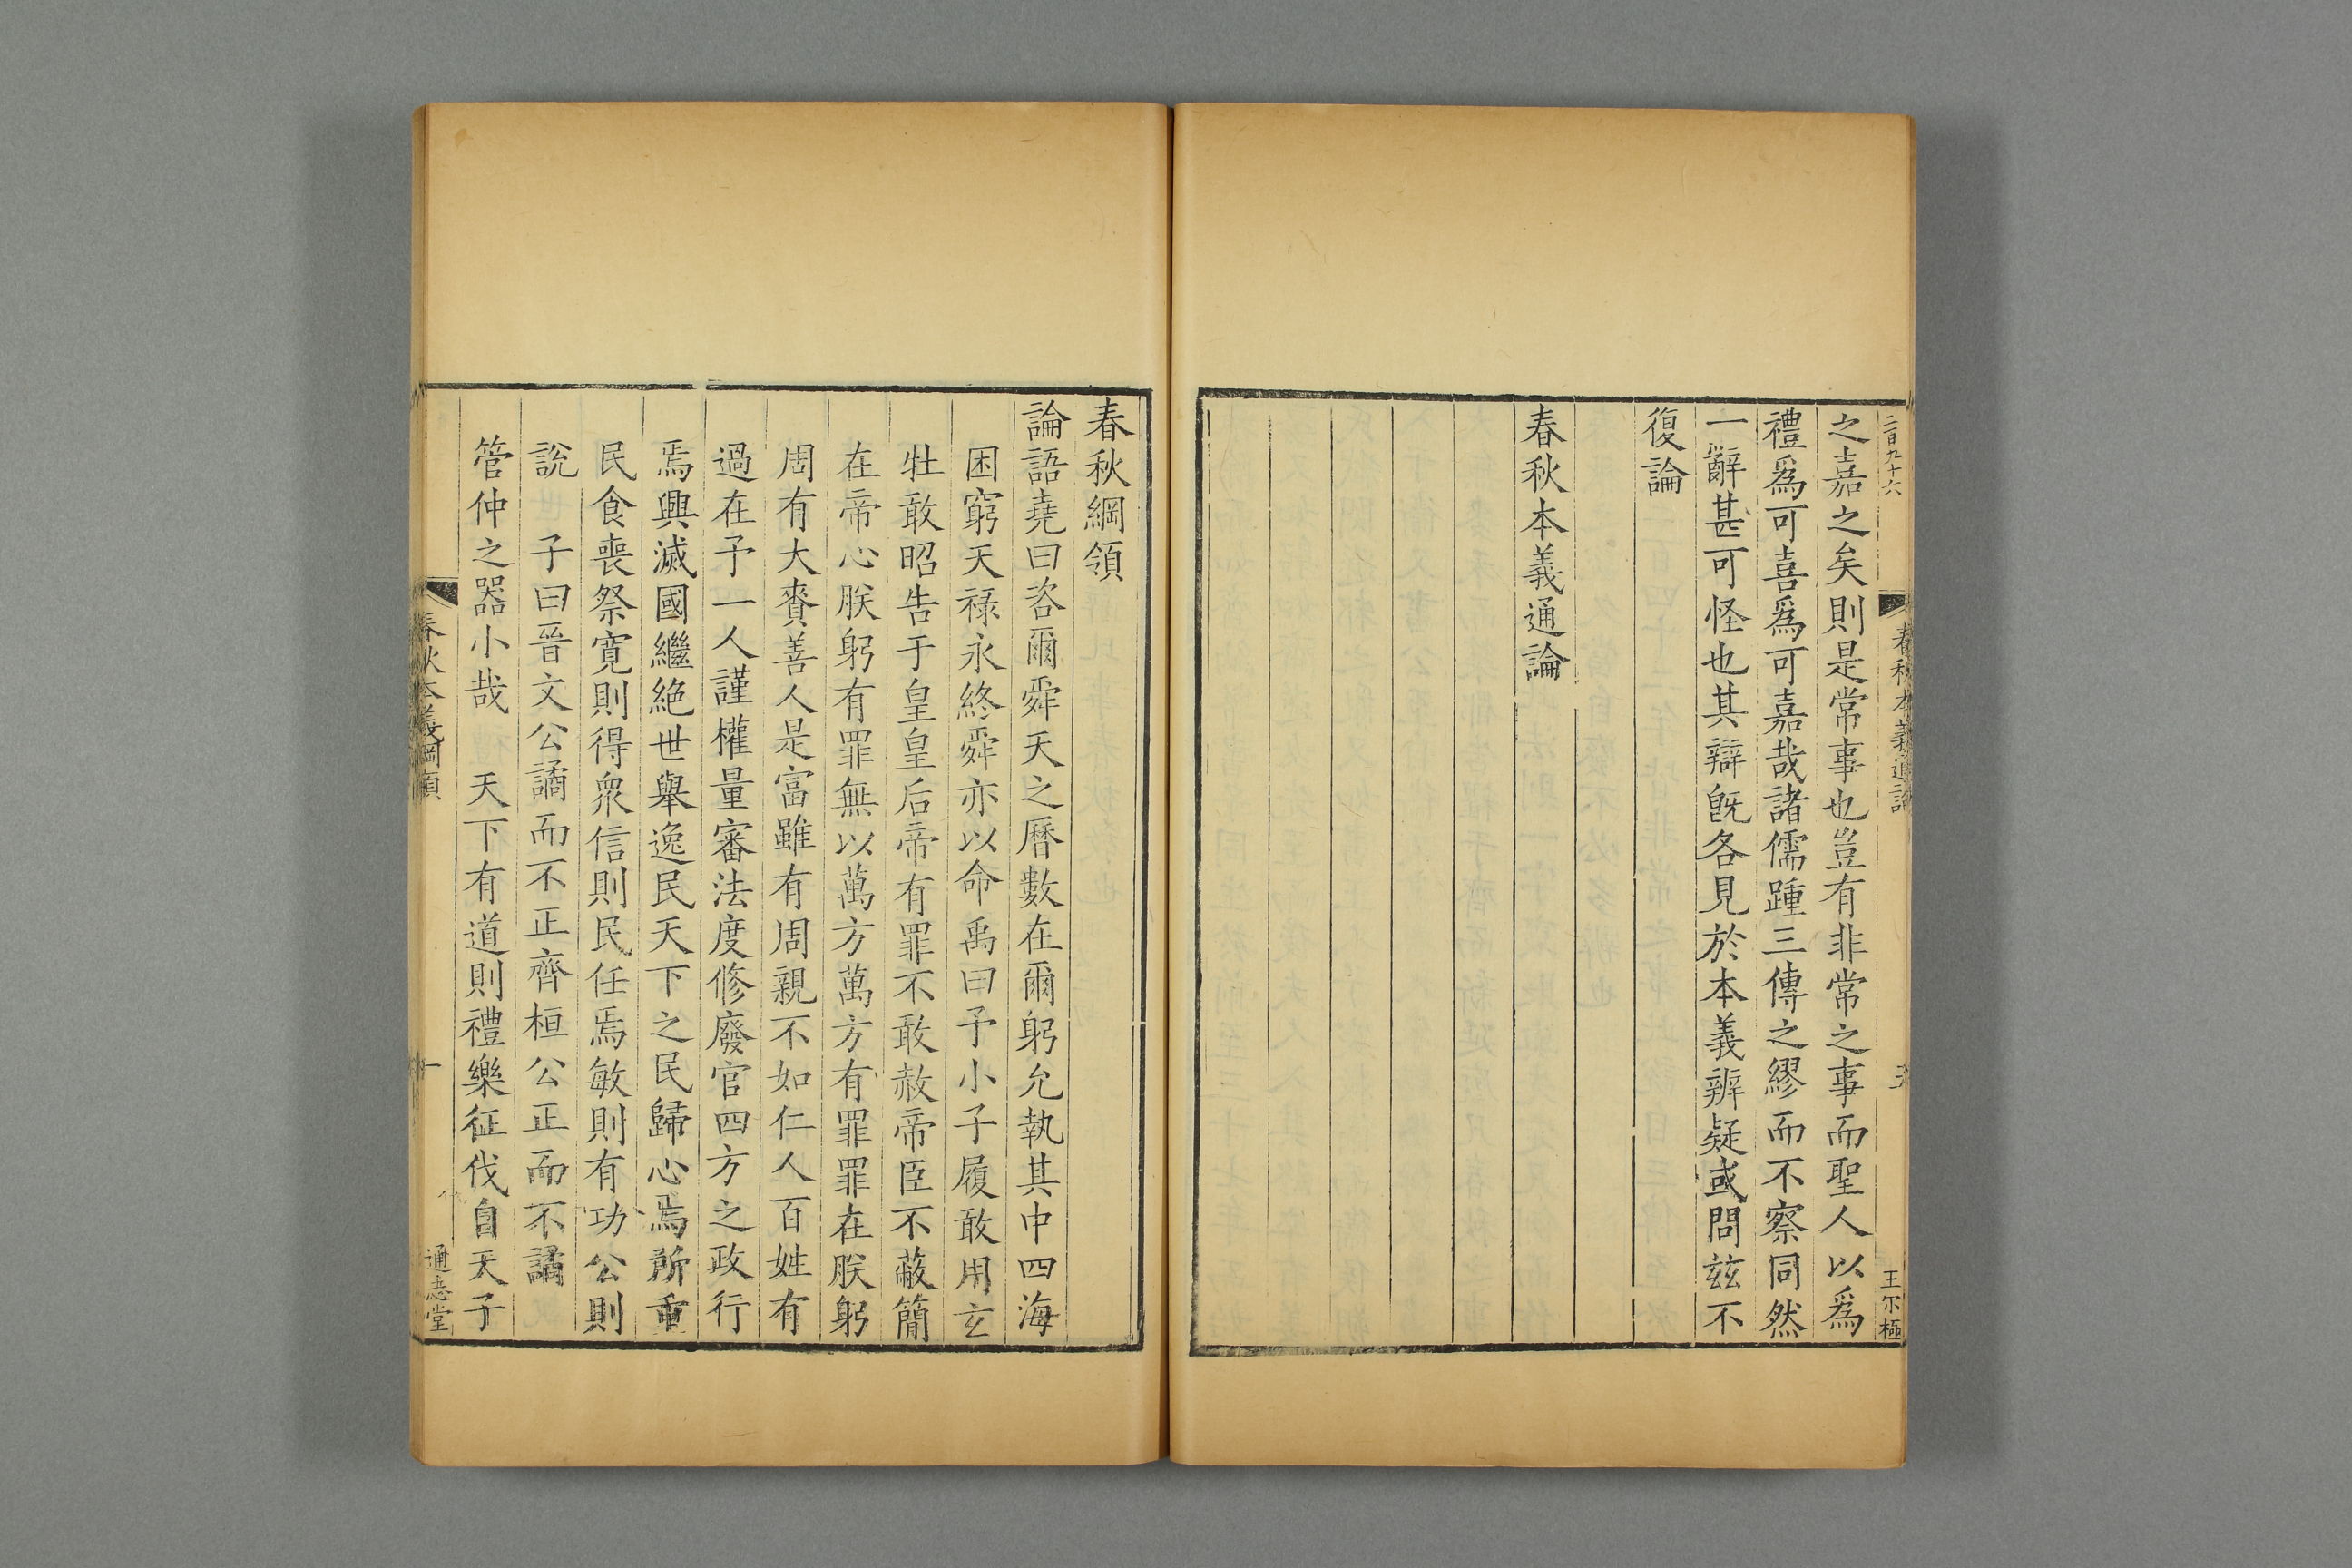 二百九十六
春秋本義通論
王尔極
之嘉之矣則是常事也豈有非常之事而聖人以爲
禮爲可喜爲可嘉哉諸儒踵三傳之繆而不察同然
一辭甚可怪也其辯旣各見於本義辨疑或問玆不
復論
春秋本義通論
春秋綱領
論語堯曰咨爾舜天之曆數在爾躬允執其中四海
困窮天祿永終舜亦以命禹曰予小子履敢用玄
牡敢昭告于皇皇后帝有罪不敢赦帝臣不蔽簡
在帝心朕躬有罪無以萬方萬方有罪罪在朕躬
周有大賚善人是富雖有周親不如仁人百姓有
過在予一人謹權量審法度修廢官四方之政行
焉興滅國繼絕世舉逸民天下之民歸心焉所重
民食喪祭寬則得衆信則民任焉敏則有功公則
說　子曰晉文公譎而不正齊桓公正而不譎
管仲之器小哉　天下有道則禮樂征伐自天子
春秋本義綱領
一
通志堂